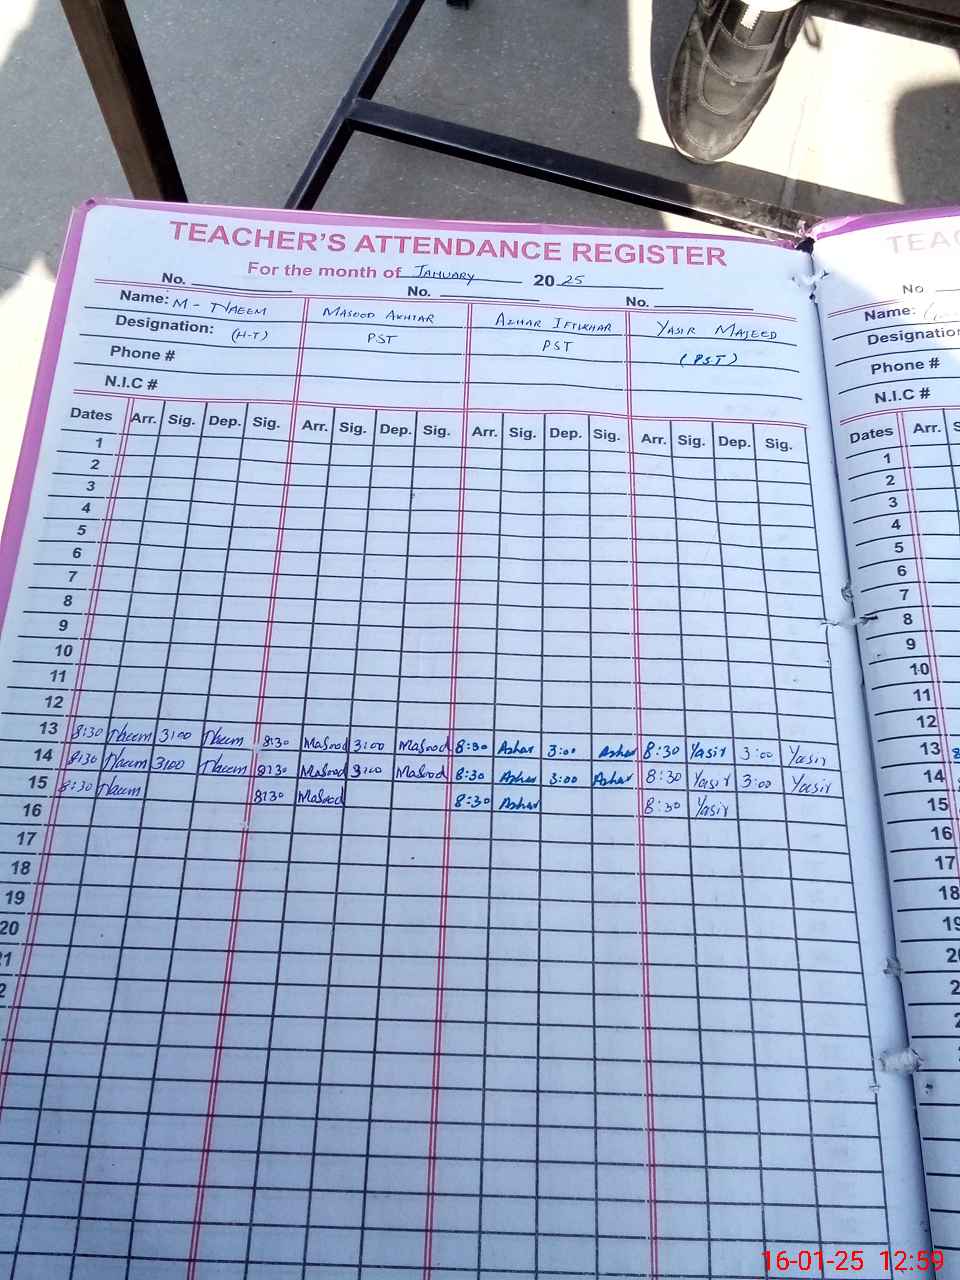 TEACHER'S ATTENDANCE REGISTER
For the month of JANUARY 2025
No. No. No.
Name: M - NAEEM MASOOD AKHTAR AZHAR IFTIKHAR YASIR MAJEED
Designation: (H-T) PST PST (PST)
Phone #
N.I.C #
Dates Arr. Sig. Dep. Sig. Arr. Sig. Dep. Sig. Arr. Sig. Dep. Sig. Arr. Sig. Dep. Sig.
1
2
3
4
5
6
7
8
9
10
11
12
13 8:30 Naeem 3:00 Naeem 8:30 Masood 3:00 Masood 8:30 Azhar 3:00 Azhar 8:30 Yasir 3:00 Yasir
14 8:30 Naeem 3:00 Naeem 8:30 Masood 3:00 Masood 8:30 Azhar 3:00 Azhar 8:30 Yasir 3:00 Yasir
15 8:30 Naeem 8:30 Masood 8:30 Azhar 8:30 Yasir
16
17
18
19
20
21
2
TEAC
No
Name:
Designation
Phone #
N.I.C #
Dates Arr. S
1
2
3
4
5
6
7
8
9
10
11
12
13 8
14
15
16
17
18
19
20
2
2
2
16-01-25 12:59